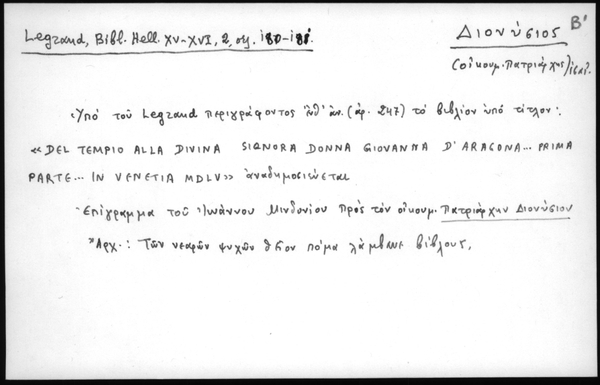 Legrand, Bibl. Hell. XV-XVI, 2, σς. 180-181.
Διονύσιος Β'
(οἰκουμ. Πατριάρχης)
Ὑπὸ τοῦ Legrand περιγράφοντος ἐνθ' ἀν. (ἀρ. 247) τὸ βιβλίον ὑπὸ τίτλον:
«DEL TEMPIO ALLA DIVINA SIGNORA DONNA GIOVANNA D'ARAGONA... PRIMA
PARTE... IN VENETIA MDLV» ἀναδημοσιεύεται
Ἐπίγραμμα τοῦ Ἰωάννου Μινδονίου πρὸς τὸν οἰκουμ. Πατριάρχην Διονύσιον
Ἀρχ.: Τῶν νεαρῶν ψυχῶν θεῖον πόμα λάμβανε βίβλους.